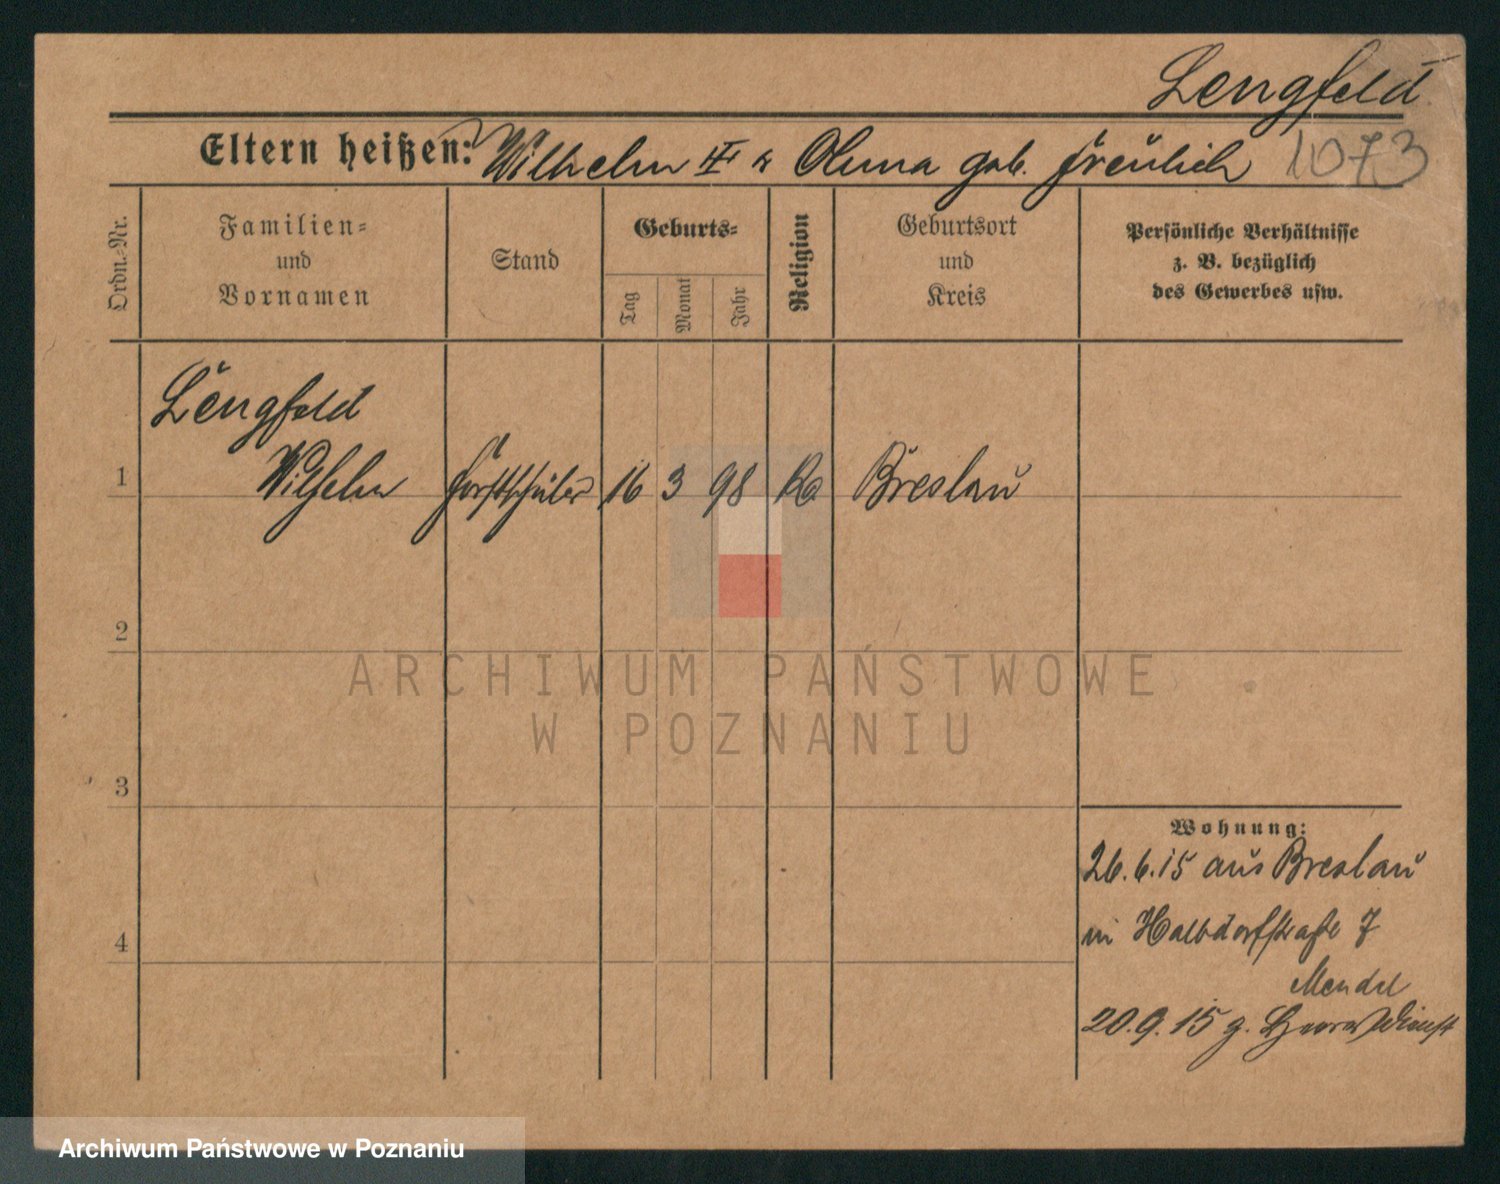 Lengfeld
Eltern heißen: Wilhelm u. geb.
1073
Ordn.-Nr.
Familien-
und
Vornamen
Stand
Geburts-
Tag
Monat
Jahr
Religion
Geburtsort
und
Kreis
Persönliche Verhältnisse
z. B. bezüglich
des Gewerbes usw.
Lengfeld
1 Wilhelm Forstschüler 16 3 98 Breslau
2
ARCHIWUM PAŃSTWOWE
W POZNANIU
3
Wohnung:
26.6.15 aus Breslau
4
in Halbdorfstraße 7
Mendel
20.9.15 z. Heeresdienst
Archiwum Państwowe w Poznaniu